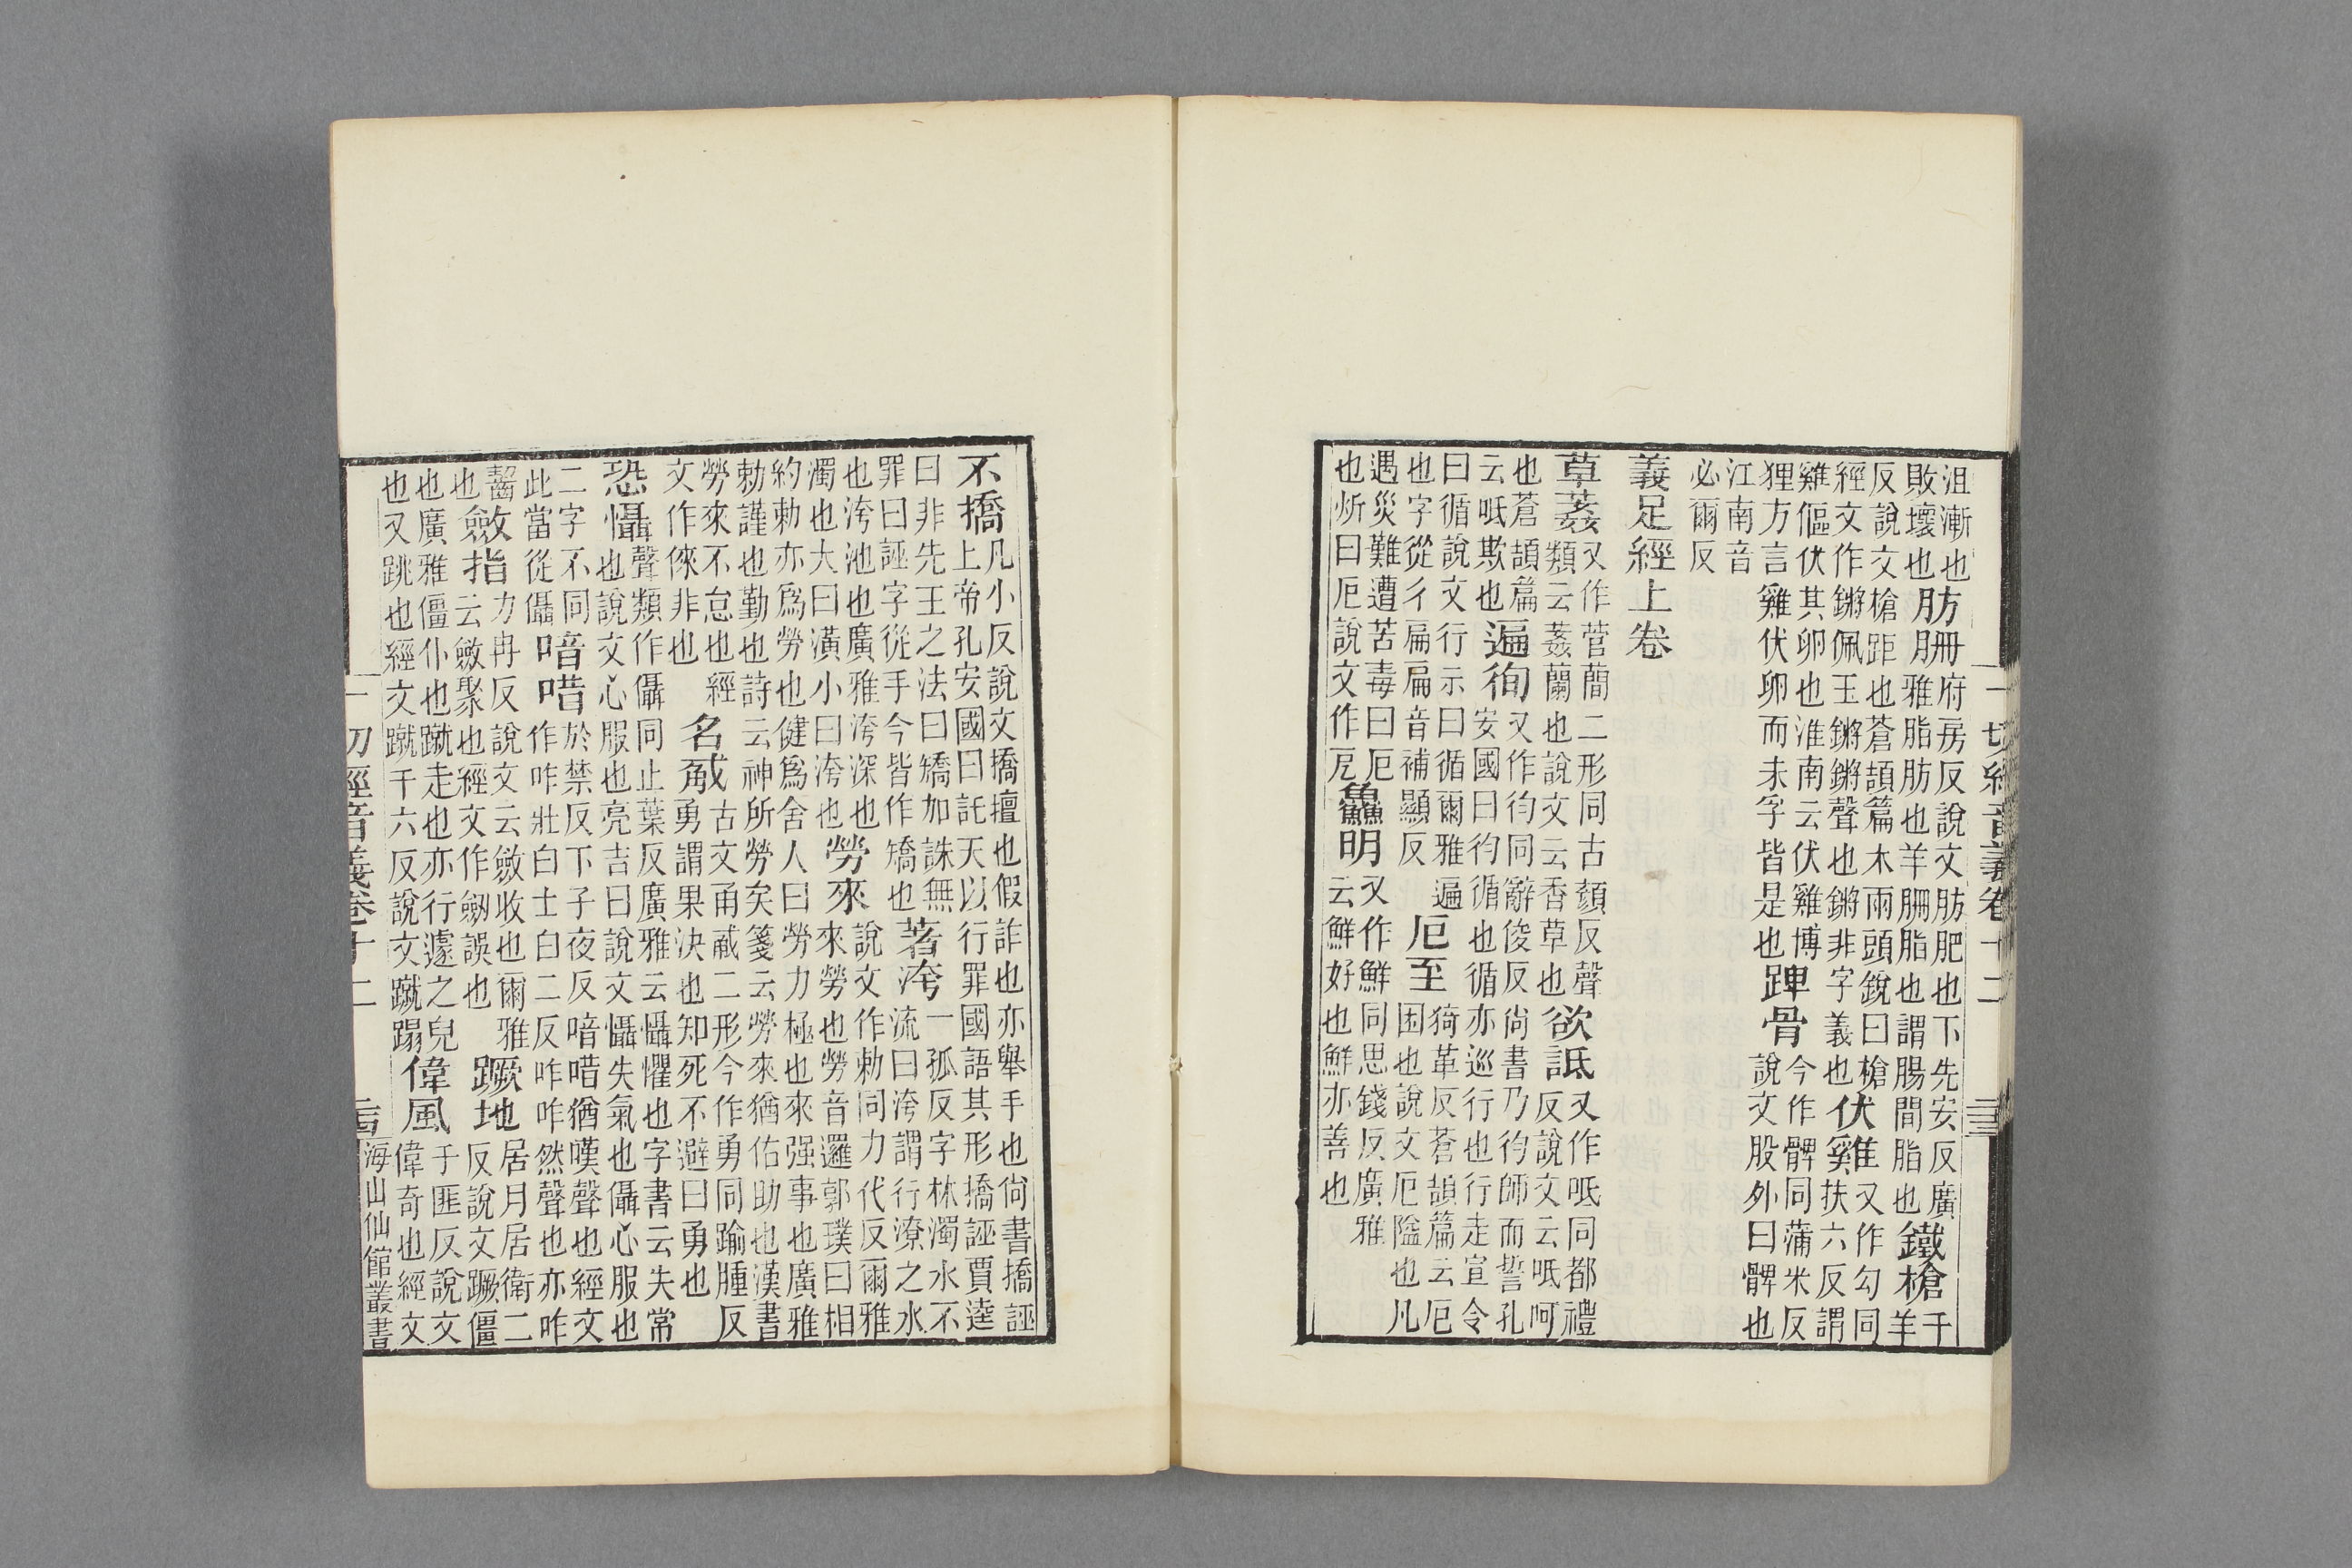 沮漸也肪䏝府房反說文肪肥也下先安反廣
敗壞也肪䏝雅脂肪也羊䏝脂也謂腸間脂也鐵槍千羊
反說文槍距也蒼頡篇木兩頭銳曰槍
經文作鏘佩玉鏘鏘聲也鏘非字義也伏雞又作勾同扶六反謂
雞傴伏其卵也淮南云伏雞博
狸方言雞伏卵而未孚皆是也踝骨今作髀同蒲米反
江南音
必爾反
說文股外曰髀也
義足經上卷
草葌又作菅蕑二形同古顏反聲
類云葌蘭也說文云香草也欲詆又作呧同都禮反說文云呧呵
也蒼頡篇
云呧欺也遍徇又作徇同辭俊反尚書乃徇師而誓孔
安國曰徇循也循亦巡行也行走宣令
曰循說文行示曰循爾雅遍
也字從彳扁扁音補顯反厄至猗革反蒼頡篇云厄
困也說文厄隘也凡
遇災難遭苦毒曰厄
也炘曰厄說文作戹鱻明又作鮮同思錢反廣雅
云鮮好也鮮亦善也
不撟几小反說文撟擅也假詐也亦舉手也尚書撟誣
上帝孔安國曰託天以行罪國語其形撟誣賈逵
曰非先王之法曰矯加誅無
罪曰誣字從手今皆作矯也著洿一孤反字林濁水不
流曰洿謂行潦之水
也洿池也廣雅洿深也
濁也大曰潢小曰洿也勞來說文作勑同力代反爾雅
來勞也勞音邏郭璞曰相
約勑亦為勞也健為舍人曰勞力極也來强事也廣雅
勑謹也勤也詩云神所勞矣箋云勞來猶佑助也漢書
勞來不怠也經
文作倈非也名㦷古文甬㦷二形今作勇同踰腫反
勇謂果決也知死不避曰勇也
恐懾聲類作儡同止葉反廣雅云懾懼也字書云失常
也說文心服也亮吉曰說文懾失氣也儡心服也
二字不同
此當從儡喑唶於禁反下子夜反喑唶猶嘆聲也經文
作咋壯白士白二反咋咋然聲也亦咋
齧
也斂指力冉反說文云斂收也爾雅
云斂聚也經文作劒誤也蹶地居月居衛二
反說文蹶僵
也廣雅僵仆也蹴走也亦行遽之皃
也又跳也經文蹴千六反說文蹴蹋偉風于匪反說文
偉奇也經文
一切經音義卷十二
海山仙館叢書